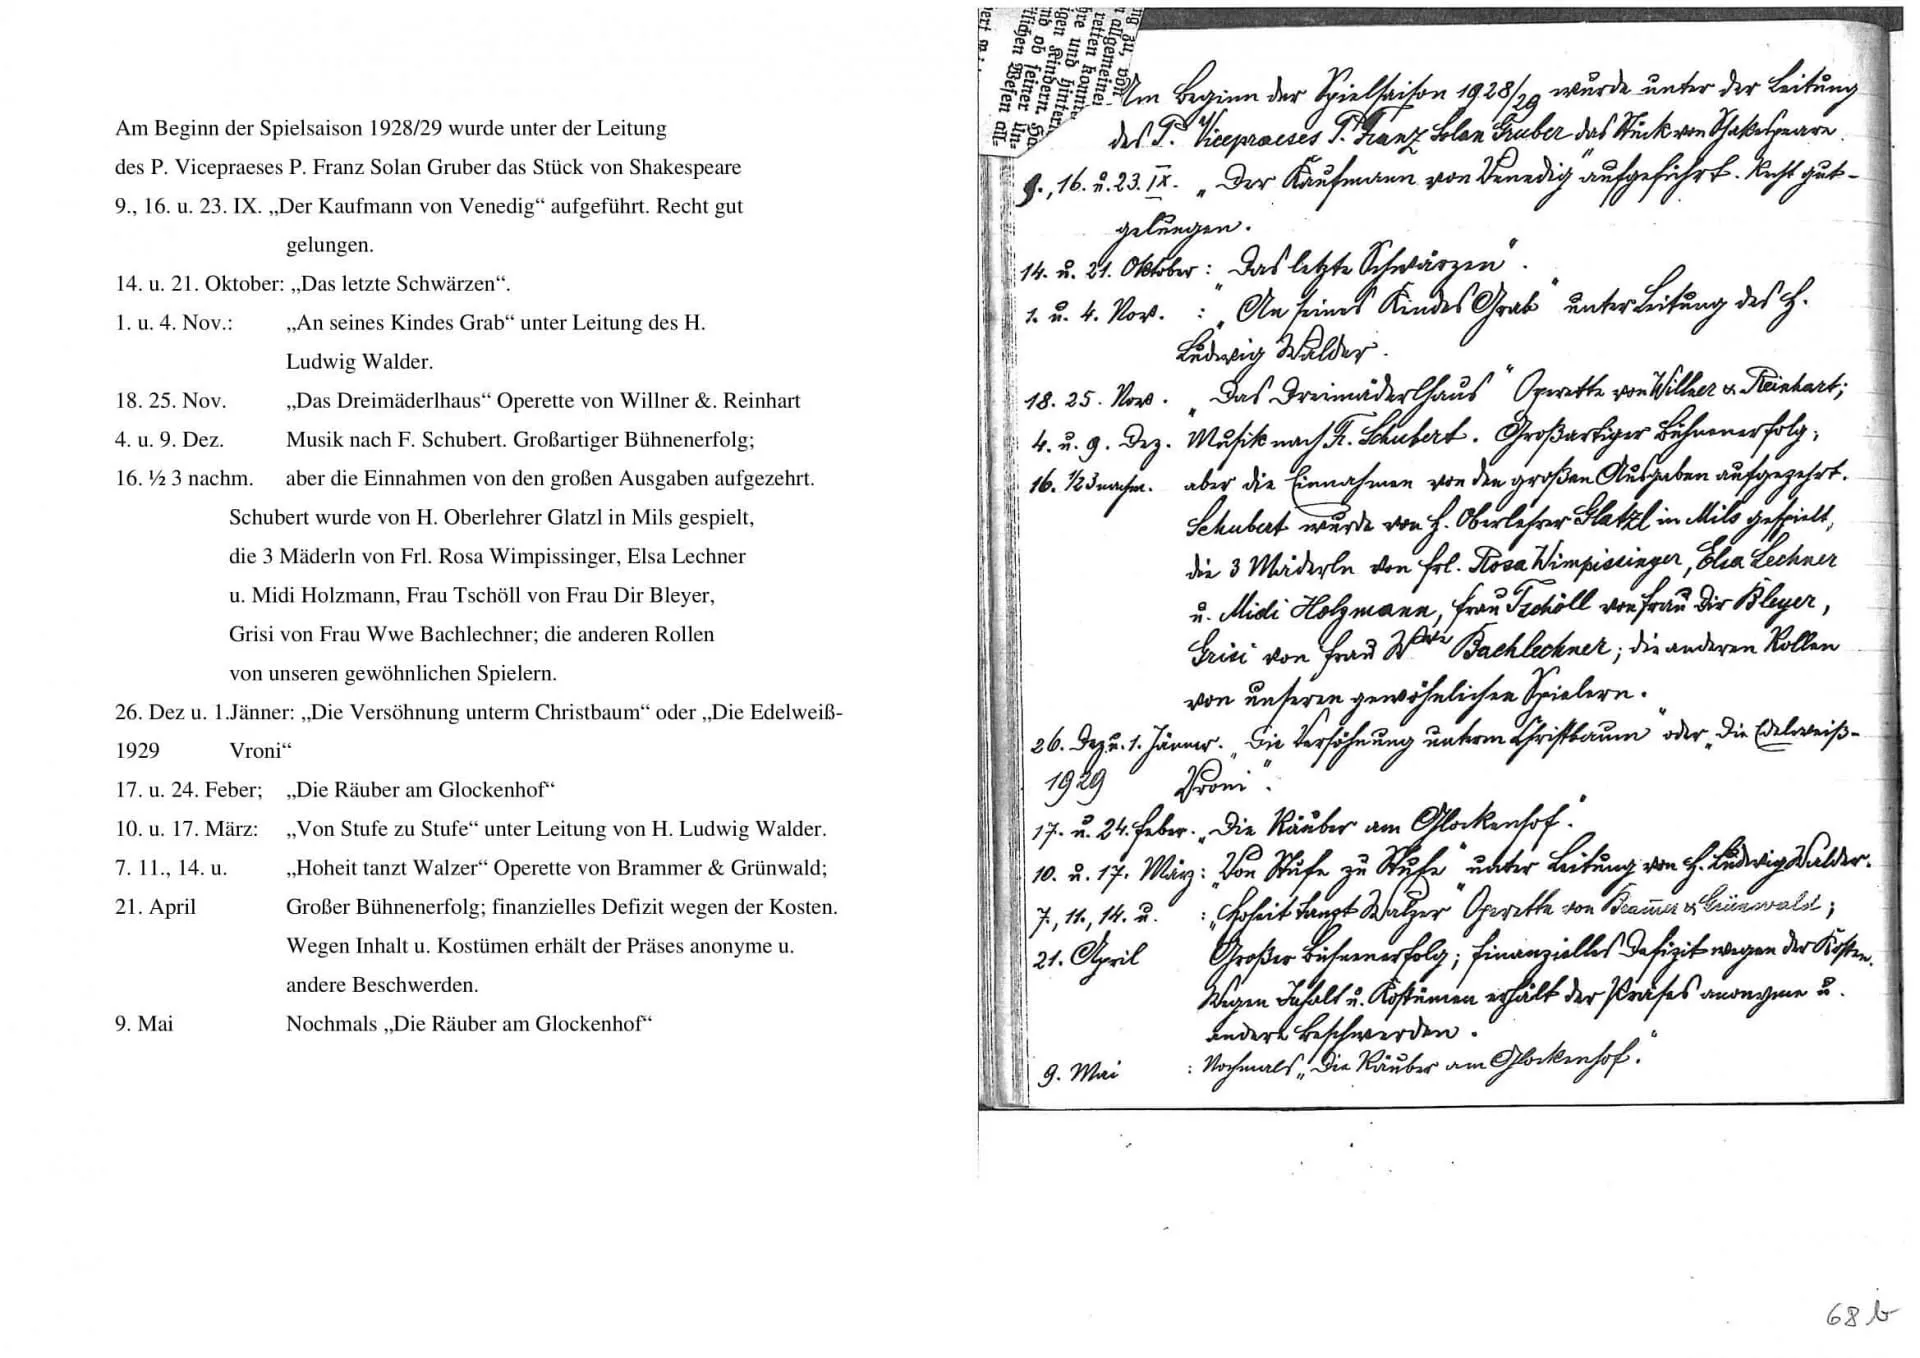 Am Beginn der Spielsaison 1928/29 wurde unter der Leitung
des P. Vicepraeses P. Franz Solan Gruber das Stück von Shakespeare
9., 16. u. 23. IX. „Der Kaufmann von Venedig“ aufgeführt. Recht gut
gelungen.
14. u. 21. Oktober: „Das letzte Schwärzen“.
1. u. 4. Nov.: „An seines Kindes Grab“ unter Leitung des H.
Ludwig Walder.
18. 25. Nov. „Das Dreimäderlhaus“ Operette von Willner &. Reinhart
4. u. 9. Dez. Musik nach F. Schubert. Großartiger Bühnenerfolg;
16. ½ 3 nachm. aber die Einnahmen von den großen Ausgaben aufgezehrt.
Schubert wurde von H. Oberlehrer Glatzl in Mils gespielt,
die 3 Mäderln von Frl. Rosa Wimpissinger, Elsa Lechner
u. Midi Holzmann, Frau Tschöll von Frau Dir Bleyer,
Grisi von Frau Wwe Bachlechner; die anderen Rollen
von unseren gewöhnlichen Spielern.
26. Dez u. 1.Jänner: „Die Versöhnung unterm Christbaum“ oder „Die Edelweiß-
1929 Vroni“
17. u. 24. Feber; „Die Räuber am Glockenhof“
10. u. 17. März: „Von Stufe zu Stufe“ unter Leitung von H. Ludwig Walder.
7. 11., 14. u. „Hoheit tanzt Walzer“ Operette von Brammer & Grünwald;
21. April Großer Bühnenerfolg; finanzielles Defizit wegen der Kosten.
Wegen Inhalt u. Kostümen erhält der Präses anonyme u.
andere Beschwerden.
9. Mai Nochmals „Die Räuber am Glockenhof“
Am Beginn der Spielsaison 1928/29 wurde unter der Leitung
des P. Vicepraeses P. Franz Solan Gruber das Stück von Shakespeare
9., 16. u. 23. IX. „Der Kaufmann von Venedig“ aufgeführt. Recht gut-
gelungen.
14. u. 21. Oktober: „Das letzte Schwärzen“.
1. u. 4. Nov. : „An seines Kindes Grab“ unter Leitung des H.
Ludwig Walder.
18. 25. Nov. „Das Dreimäderlhaus“ Operette von Willner & Reinhart;
4. u. 9. Dez. Musik nach Fr. Schubert. Großartiger Bühnenerfolg;
16. 1/2 3 nachm. aber die Einnahmen von den großen Ausgaben aufgezehrt.
Schubert wurde von H. Oberlehrer Glatzl in Mils gespielt,
die 3 Mäderln von Frl. Rosa Wimpissinger, Elsa Lechner
u. Midi Holzmann, Frau Tschöll von Frau Dir Bleyer,
Grisi von Frau Wwe Bachlechner; die anderen Rollen
von unseren gewöhnlichen Spielern.
26. Dez u. 1. Jänner. „Die Versöhnung unterm Christbaum“ oder „Die Edelweiß-
1929 Vroni“.
17. u. 24. Feber. „Die Räuber am Glockenhof“.
10. u. 17. März: „Von Stufe zu Stufe“ unter Leitung von H. Ludwig Walder.
7., 11., 14. u. : „Hoheit tanzt Walzer“ Operette von Bram̄er & Grünwald;
21. April Großer Bühnenerfolg; finanzielles Defizit wegen der Kosten.
Wegen Inhalt u. Kostümen erhält der Präses anonyme u.
andere Beschwerden.
9. Mai : Nochmals „Die Räuber am Glockenhof.“
68 b